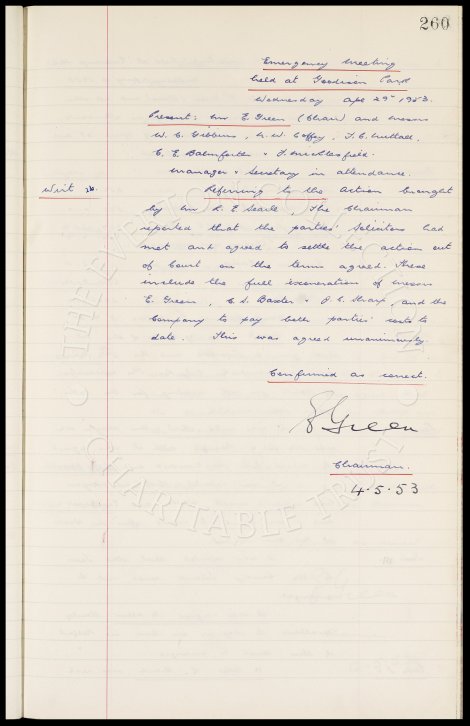 260
Emergency Meeting
held at Goodison Park
Wednesday Apl 29th 1953.
Present: Mr E. Green (Chair) and Messrs
W. C. Gibbins, N. W. Coffey, T. C. Nuttall,
C. E. Balmforth & J. Micklesfield.
Manager & Secretary in attendance.
Writ
Referring to the Action brought
by Mr R. E. Searle, The Chairman
reported that the parties' Solicitors had
met and agreed to settle the action out
of Court on the terms agreed. These
include the full exoneration of Messrs
E. Green, C. S. Baxter & J. C. Sharp, and the
Company to pay both parties' costs to
date. This was agreed unanimously.
Confirmed as correct.
E Green
Chairman.
4.5.53
THE EVERTON COLLECTION
CHARITABLE TRUST